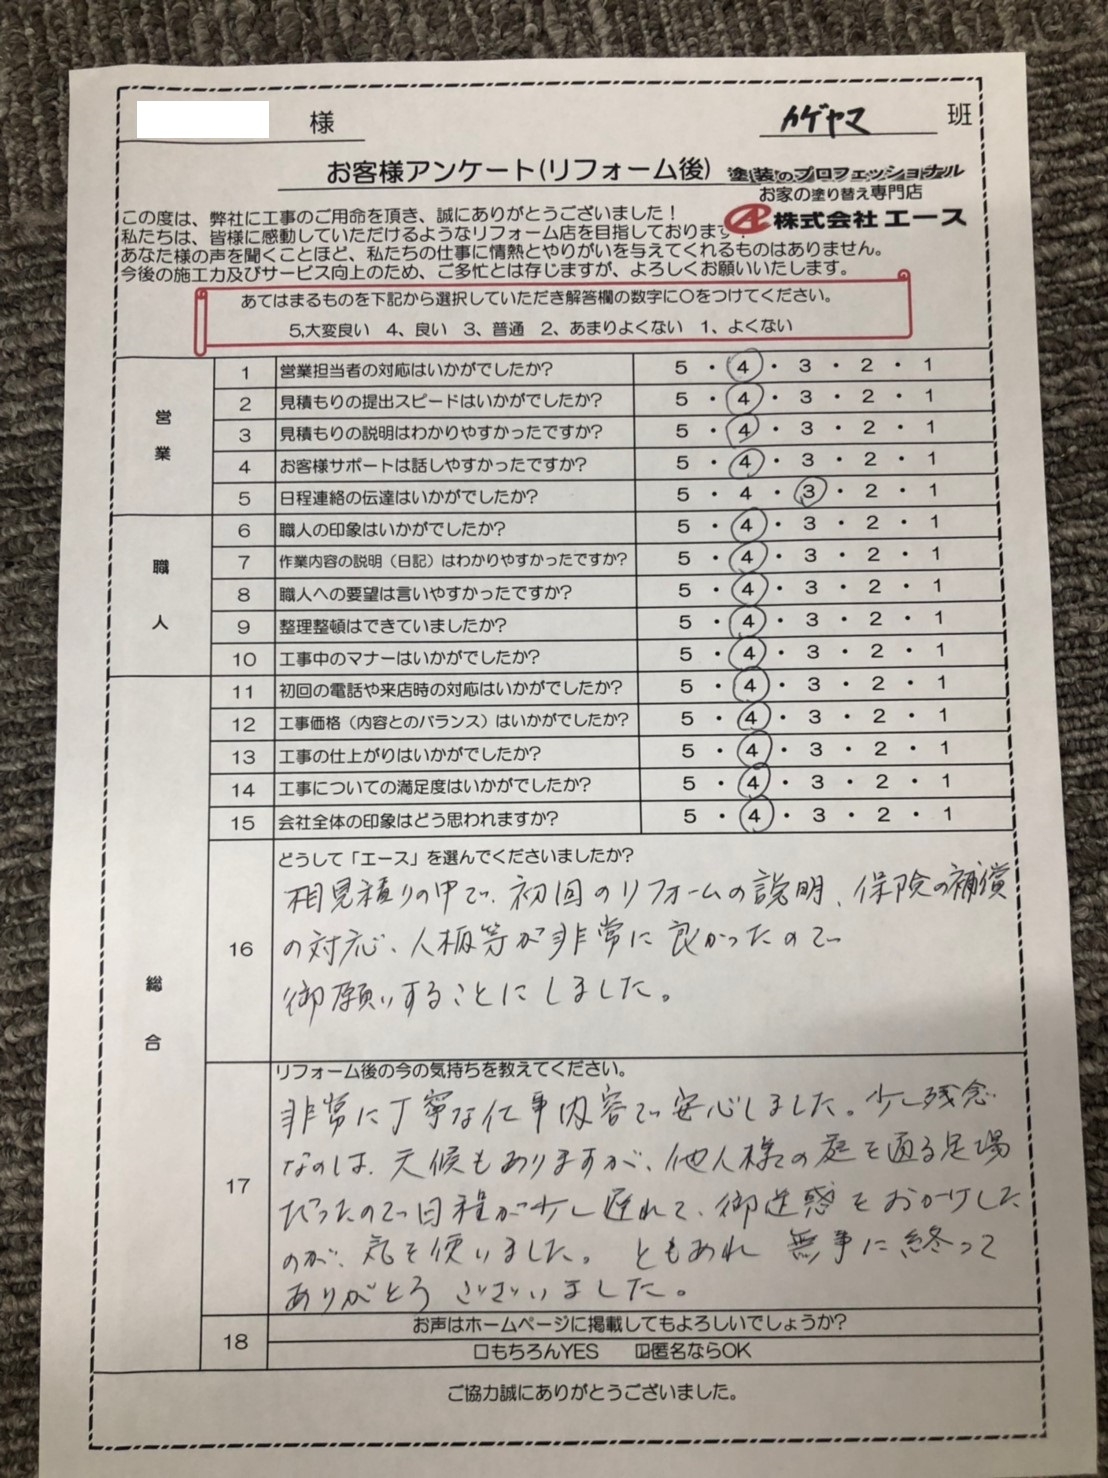 様
カゲヤマ 班
お客様アンケート(リフォーム後)
塗装のプロフェッショナル
お家の塗り替え専門店
株式会社エース
この度は、弊社に工事のご用命を頂き、誠にありがとうございました!
私たちは、皆様に感動していただけるようなリフォーム店を目指しております!
あなた様の声を聞くことほど、私たちの仕事に情熱とやりがいを与えてくれるものはありません。
今後の施工力及びサービス向上のため、ご多忙とは存じますが、よろしくお願いいたします。
あてはまるものを下記から選択していただき解答欄の数字に○をつけてください。
5,大変良い 4、良い 3、普通 2、あまりよくない 1、よくない
営業
1 営業担当者の対応はいかがでしたか? 5・4・3・2・1
2 見積もりの提出スピードはいかがでしたか? 5・4・3・2・1
3 見積もりの説明はわかりやすかったですか? 5・4・3・2・1
4 お客様サポートは話しやすかったですか? 5・4・3・2・1
5 日程連絡の伝達はいかがでしたか? 5・4・3・2・1
職人
6 職人の印象はいかがでしたか? 5・4・3・2・1
7 作業内容の説明(日記)はわかりやすかったですか? 5・4・3・2・1
8 職人への要望は言いやすかったですか? 5・4・3・2・1
9 整理整頓はできていましたか? 5・4・3・2・1
10 工事中のマナーはいかがでしたか? 5・4・3・2・1
総合
11 初回の電話や来店時の対応はいかがでしたか? 5・4・3・2・1
12 工事価格(内容とのバランス)はいかがでしたか? 5・4・3・2・1
13 工事の仕上がりはいかがでしたか? 5・4・3・2・1
14 工事についての満足度はいかがでしたか? 5・4・3・2・1
15 会社全体の印象はどう思われますか? 5・4・3・2・1
16 どうして「エース」を選んでくださいましたか?
相見積りの中で、初回のリフォームの説明、保険の補償
の対応、人板等が非常に良かったので
御願いすることにしました。
17 リフォーム後の今の気持ちを教えてください。
非常に丁寧な仕事内容で安心しました。少し残念
なのは、天候もありますが、他人様の庭を通る足場
だったので日程が少し遅れて、御迷惑をおかけした
のが、気を使いました。ともあれ無事に終って
ありがとうございました。
18 お声はホームページに掲載してもよろしいでしょうか?
□もちろんYES ☑匿名ならOK
ご協力誠にありがとうございました。